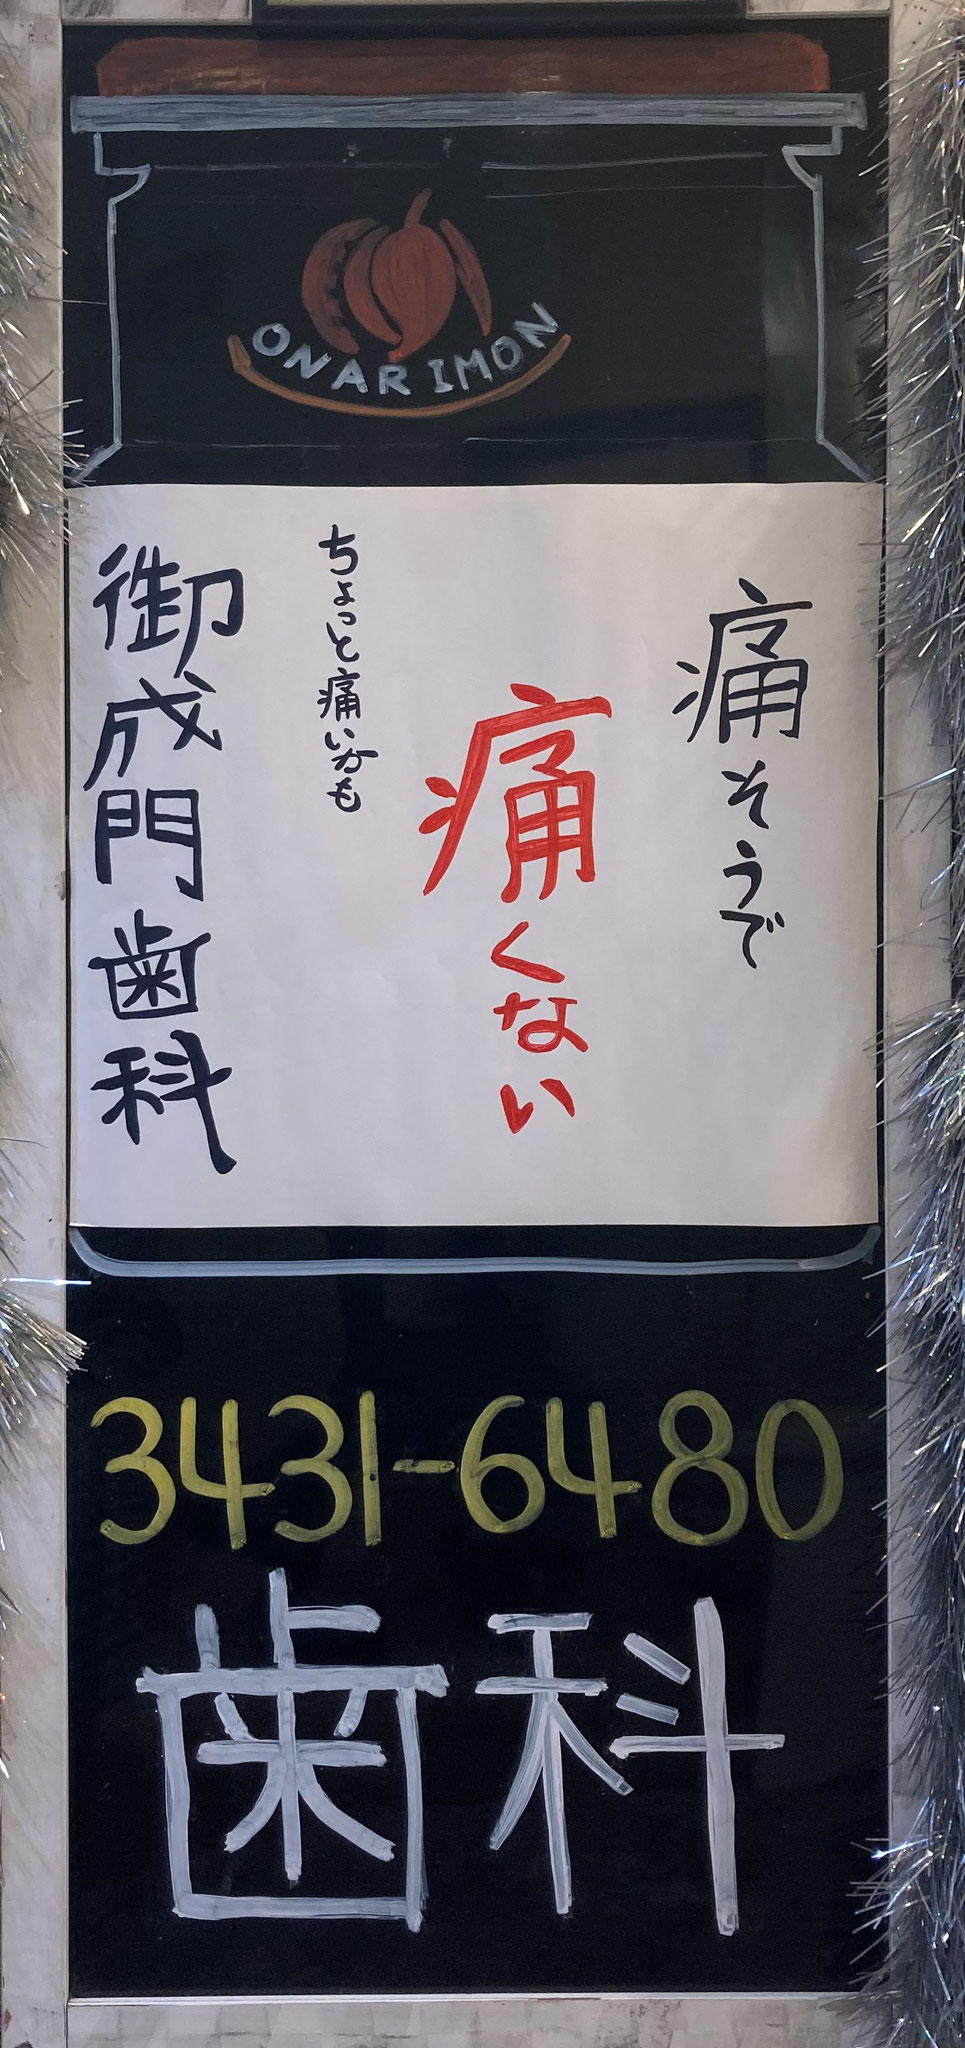 ONARIMON
痛そうで
痛くない
ちょっと痛いかも
御成門歯科
3431-6480
歯科